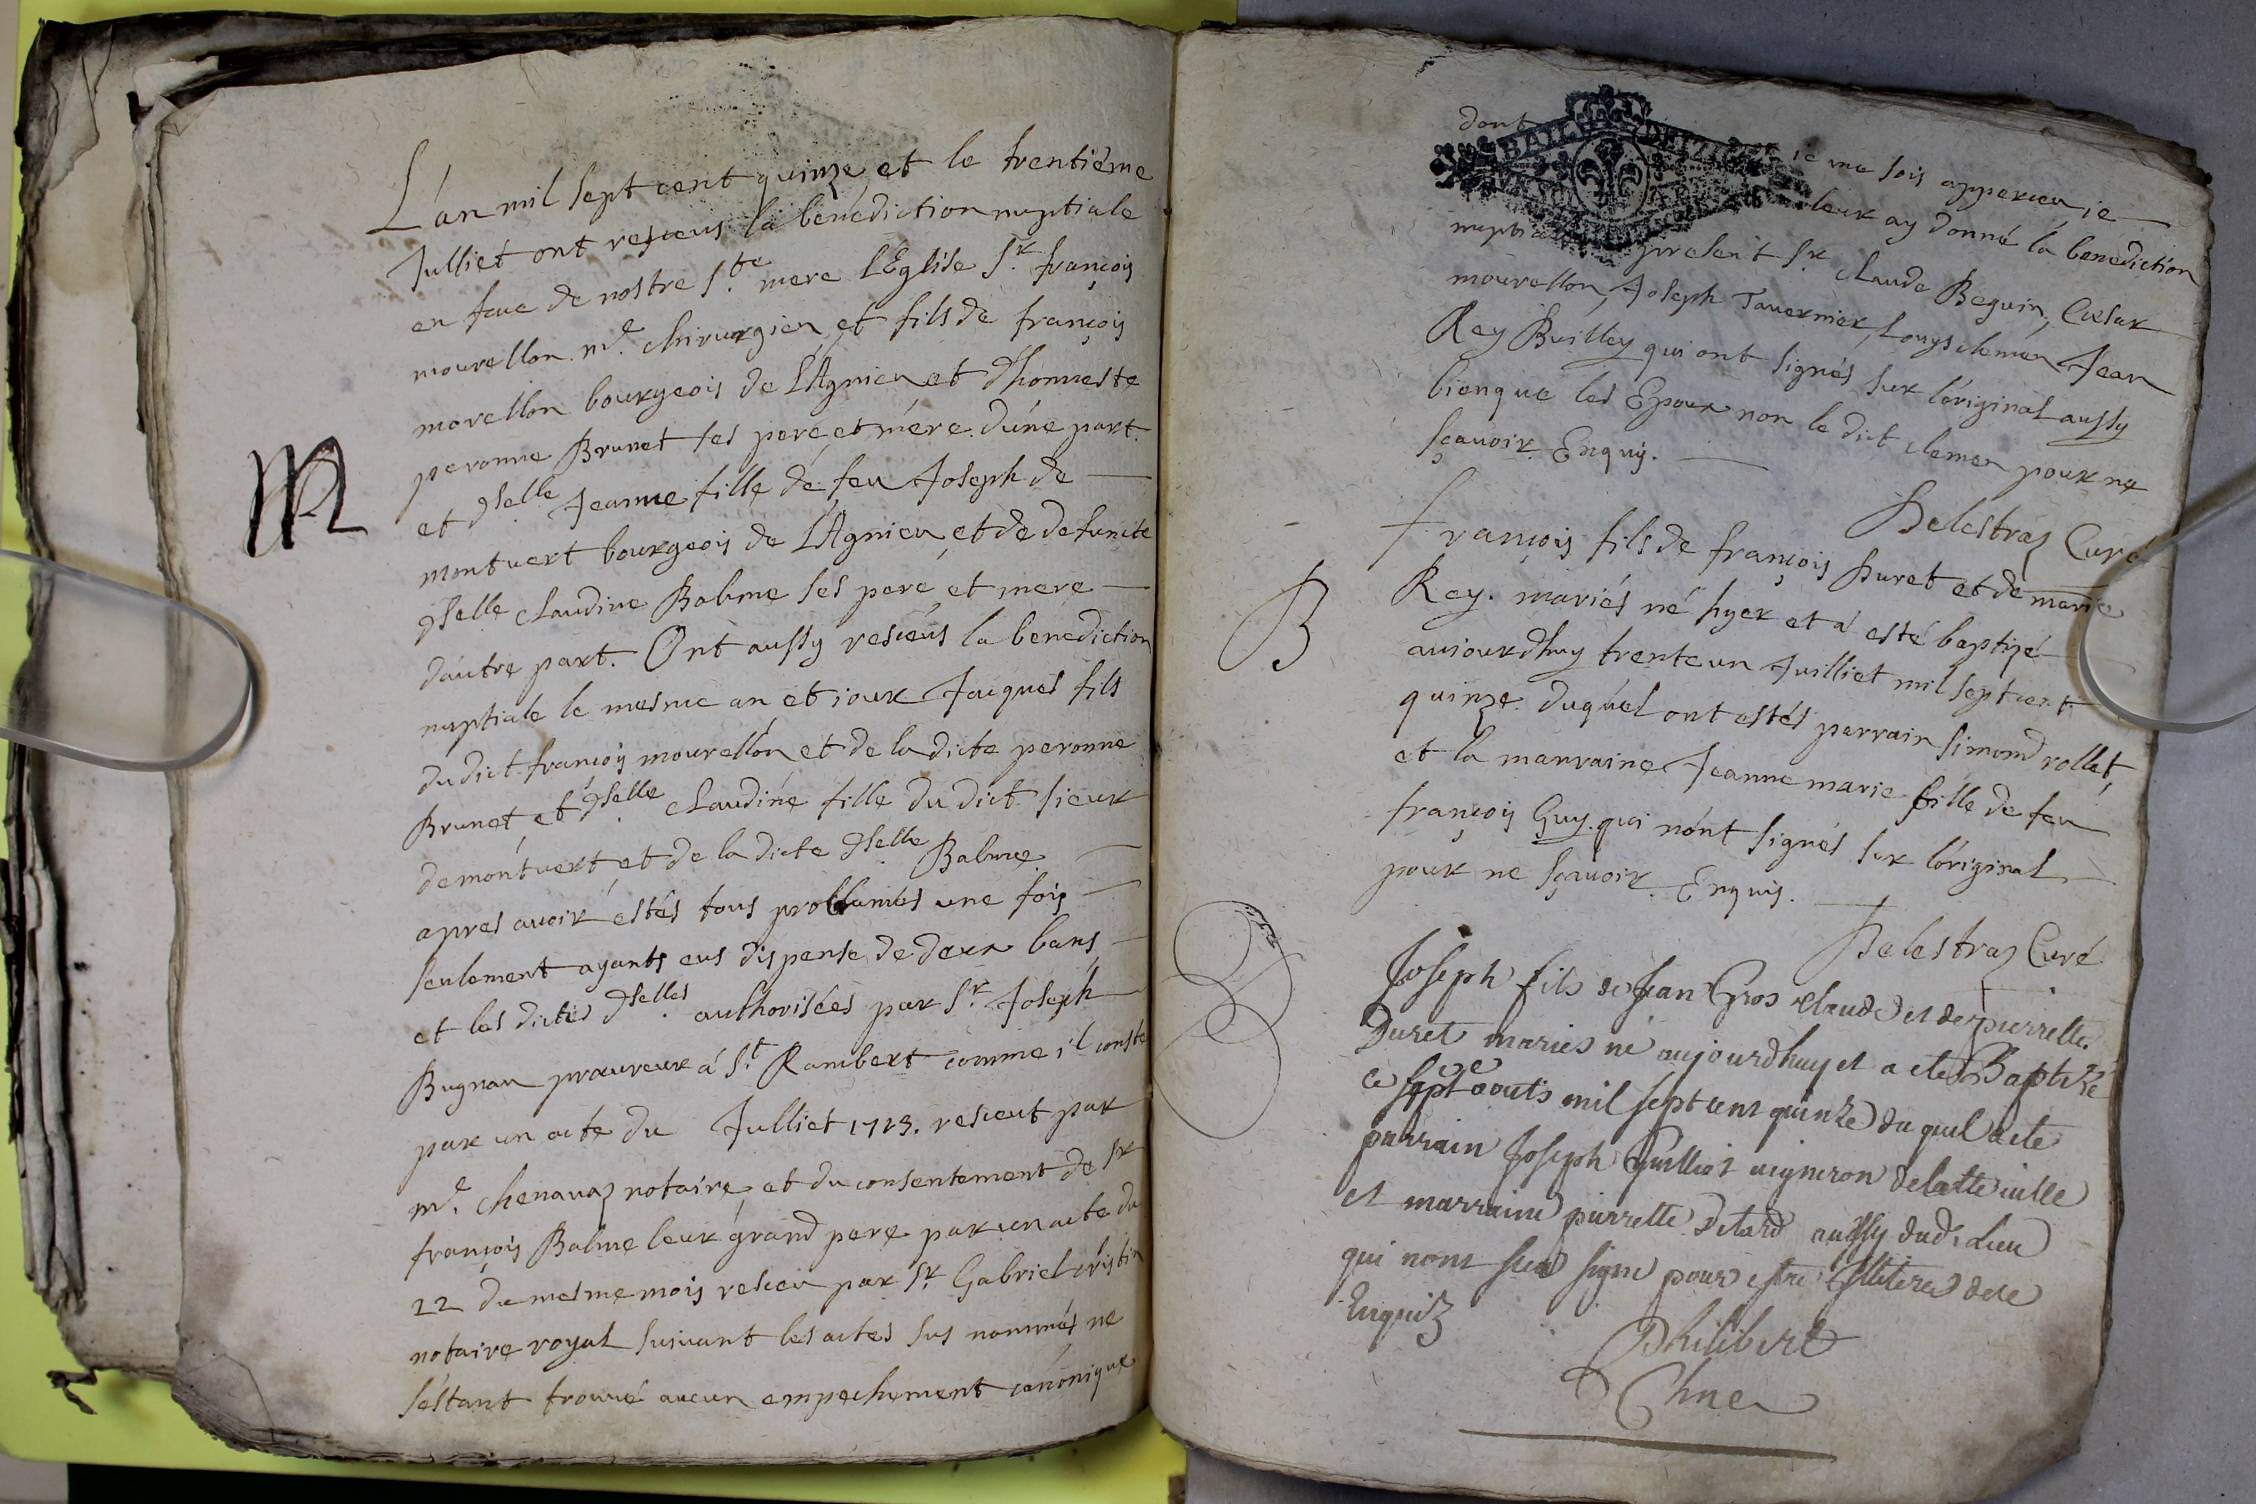 L'an mil sept cent quinze et le trentiéme
Julliet ont resceus la benédiction nuptiale
en face de nostre S.te mere l'Eglise S.r françois
mourellon m.e chirurgien et fils de françois
morellon bourgeois de L'Agnieu et d'honneste
peronne Brunet ses pere et mére d'úne part.
M
et dselle Jeanne fille dé feu Joseph de
montvert bourgeois de L'Agnieu et de defuncte
dselle claudine Balme ses pere et mere
d'autre part. Ont aussy resceus la benediction
nuptiale le mesme an et iour Jacques fils
du dict françois mourellon et de la dicte peronne
Brunet et dselle claudine fille du dict sieur
de montvert et de la dicte dselle Balme
apres avoir estés tous proclamés une fois
seulement ayants eus dispense de deux bans
et les dictes dselles authorisées par S.r Joseph
Bugnan procureur á S.t Rambert comme il conste
par un acte du Julliet 1713. resceut par
m.e chenavaz notaire et du consentement de S.r
françois Balme leur grand pere par un acte du
22 du mesme mois resceu par S.r Gabriel cristin
notaire royal suivant les actes sus nommés ne
s'éstant trouvé aucun empechement canonique
dont ie me sois apperceu ie
leur ay donné la benediction
nuptiale present S.r claude Beguin, Cæsar
mourellon, Joseph Tavernier, Louys clemen Jean
Rey Builley qui ont signés sur l'original aussy
bienque les Epoux non le dict clemen pour ne
sçavoir. Enquis.
Delestraz Curé
françois fils de françois Duret et de marie
B
Rey. mariés né hyer et a esté baptizé
auiourdhuy trente un Juilliet mil sept cent
quinze. duquel ont estés parrain simond rollet,
et la marraine Jeanne marie fille de feu
françois Guy. qui n'ont signés sur l'original
pour ne sçavoir. Enquis.
Delestraz Curé
Joseph fils de Jean Gros claude et de pierrette
B
Duret maries né aujourdhuy et a ete Baptizé
ce septe aouts mil sept cent quinze du quel a ete
parrain Joseph Guilliot vigneron de cette ville
et marraine pierrette aussy dud. lieu
qui n'ont signé pour estre illiteres de ce
Enquis
Philibert